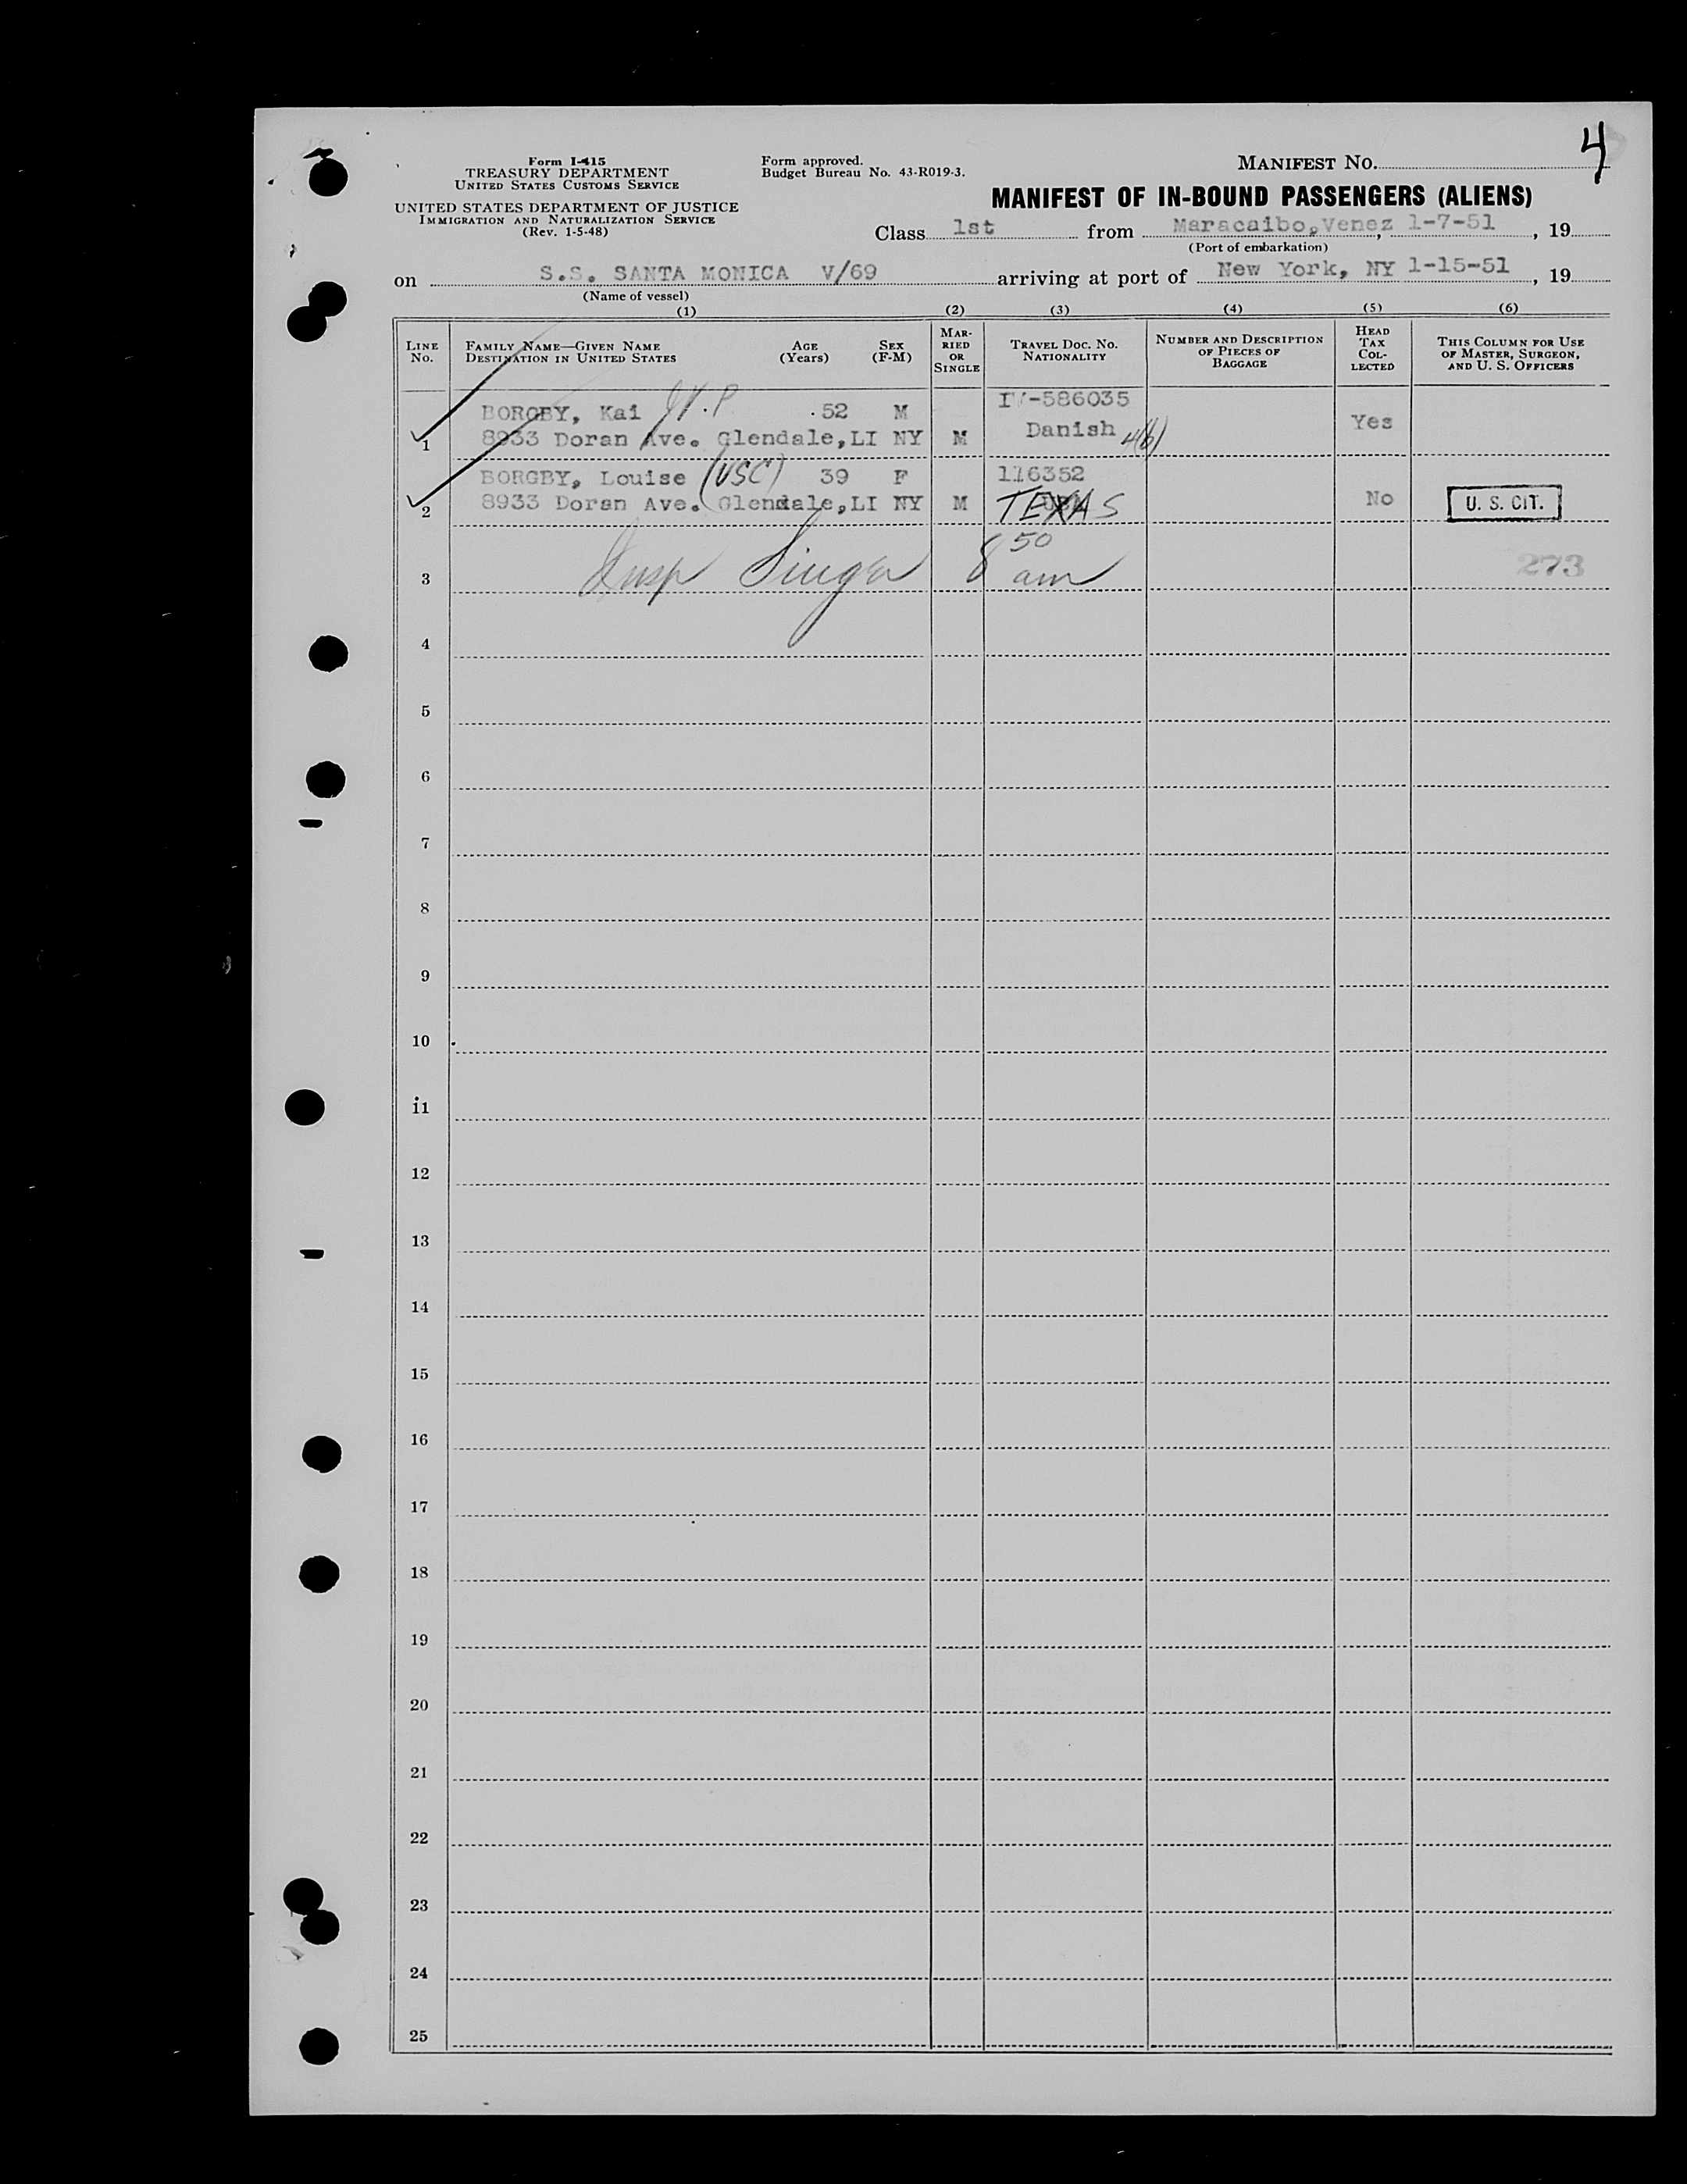 4
Form I-415
TREASURY DEPARTMENT
UNITED STATES CUSTOMS SERVICE
UNITED STATES DEPARTMENT OF JUSTICE
IMMIGRATION AND NATURALIZATION SERVICE
(Rev. 1-5-48)
Form approved.
Budget Bureau No. 43-R019-3.
MANIFEST NO.
MANIFEST OF IN-BOUND PASSENGERS (ALIENS)
Class 1st from Maracaibo,Venez, 1-7-51, 19
(Port of embarkation)
on S.S. SANTA MONICA V/69 arriving at port of New York, NY 1-15-51, 19
(Name of vessel)
(1) (2) (3) (4) (5) (6)
LINE No.
FAMILY NAME—GIVEN NAME
DESTINATION IN UNITED STATES
AGE (Years)
SEX (F-M)
MARRIED OR SINGLE
TRAVEL DOC. NO. NATIONALITY
NUMBER AND DESCRIPTION OF PIECES OF BAGGAGE
HEAD TAX COLLECTED
THIS COLUMN FOR USE OF MASTER, SURGEON, AND U. S. OFFICERS
BORGBY, Kai 52 M -586035
1 8933 Doran Ave. Glendale,LI NY M Danish 4(b) Yes
BORGBY, Louise (USC) 39 F 116352
2 8933 Doran Ave. Glendale,LI NY M TEXAS No U. S. CIT.
3 Insp Singer 8 50 am 273
4
5
6
7
8
9
10
11
12
13
14
15
16
17
18
19
20
21
22
23
24
25